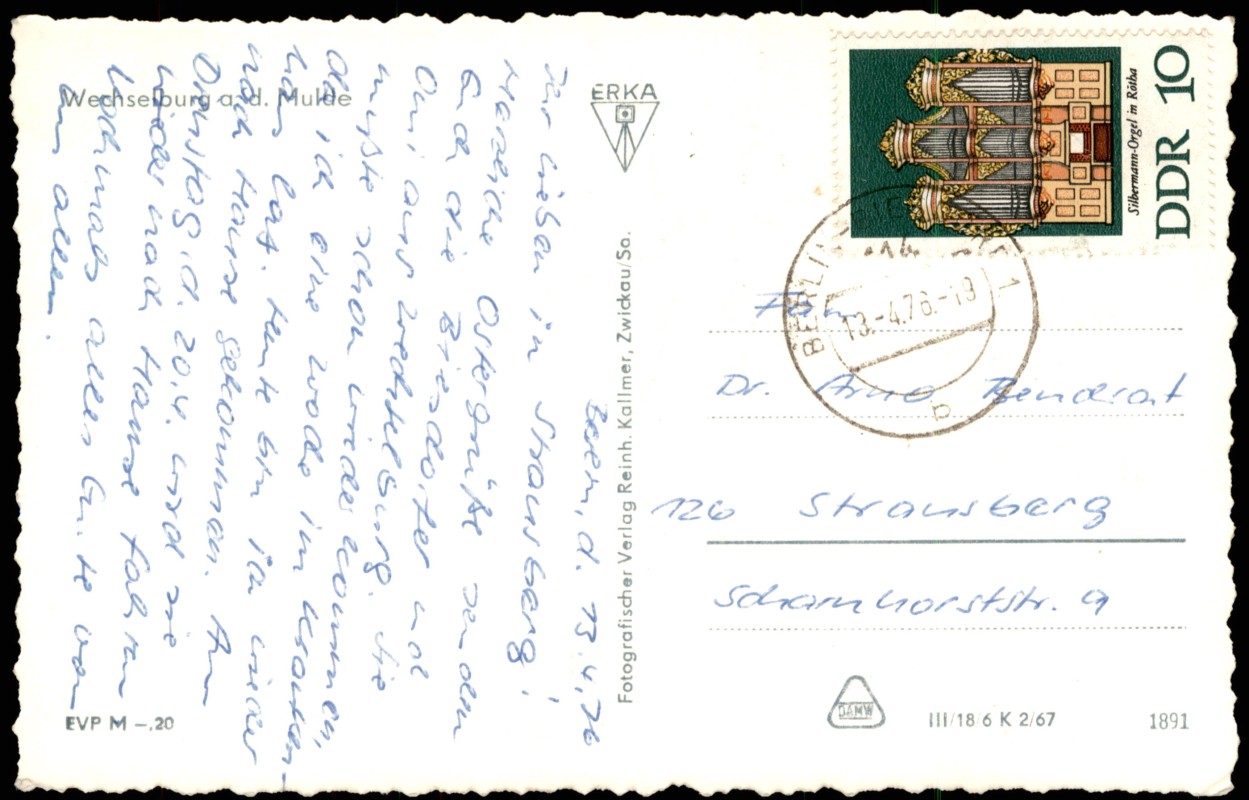 Wechselburg a. d. Mulde
Berlin, d. 13.4.76
Ihr Lieben in Strausberg!
Herzliche Ostergrüße senden
Euch die Biesdorfer und
Omi aus Wechselburg. Sie
mußte schon wiederkommen,
da ich eine Woche im Kranken-
haus lag. Heute bin ich wieder
nach Hause gekommen. Am
Dienstag, d. 20.4. wird sie
wieder nach Hause fahren
Nochmals alles Gute von
uns allen.
EVP M –,20
ERKA
Fotografischer Verlag Reinh. Kallmer, Zwickau/Sa.
Silbermann-Orgel in Rötha
DDR 10
BERLIN
13.-4.76.-18
b
Fam.
Dr. Arno Bendrat
126 Strausberg
Scharnhorststr. 9
DAMW
III/18/6 K 2/67
1891